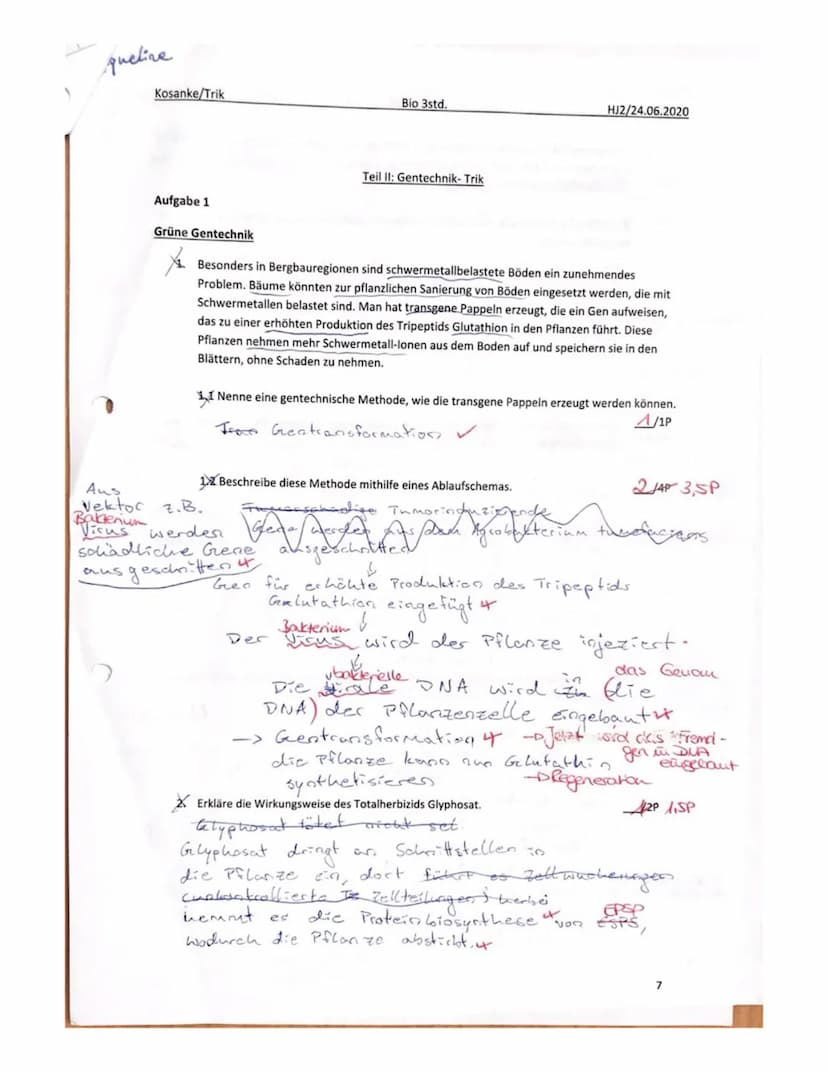 queline
Kosanke/Trik
Bio 3std.
HJ2/24.06.2020
Teil II: Gentechnik- Trik
Aufgabe 1
Grüne Gentechnik
1. Besonders in Bergbauregionen sind schwermetallbelastete Böden ein zunehmendes
Problem. Bäume könnten zur pflanzlichen Sanierung von Böden eingesetzt werden, die mit
Schwermetallen belastet sind. Man hat transgene Pappeln erzeugt, die ein Gen aufweisen,
das zu einer erhöhten Produktion des Tripeptids Glutathion in den Pflanzen führt. Diese
Pflanzen nehmen mehr Schwermetall-Ionen aus dem Boden auf und speichern sie in den
Blättern, ohne Schaden zu nehmen.
1.1 Nenne eine gentechnische Methode, wie die transgene Pappeln erzeugt werden können.
1/1P
Gentransformation ✓
1.2 Beschreibe diese Methode mithilfe eines Ablaufschemas.
2/4P 3,5P
Aus
Vektor z.B.
Bakterium
Virus werden
schädliche Gene
ausgeschnitten
Tumorinduzierende
Gene werden aus dem Agrobakterium tumefaciens
ausgeschnitten
↓
Gen für erhöhte Produktion des Tripeptids
Glutathion eingefügt
Bakterium ↓
Der Virus wird der Pflanze injeziert.
↓
bakterielle das Genom
Die virale DNA wird in (die
DNA) der Pflanzenzelle eingebaut
-> Gentransformation → Jetzt wird das Fremd-
gen in DNA
eingebaut
die Pflanze kann nun Glutathin
synthetisieren → Regeneration
2. Erkläre die Wirkungsweise des Totalherbizids Glyphosat.
/2P 1,5P
Glyphosat tötet nicht sel.
Glyphosat dringt an Schnittstellen in
die Pflanze ein, dort führt es Zellwucherungen
(unkontrollierte Zellteilungen) herbei
hemmt es die Proteinbiosynthese von ESPS,
EPSP
wodurch die Pflanze abstirbt.
7